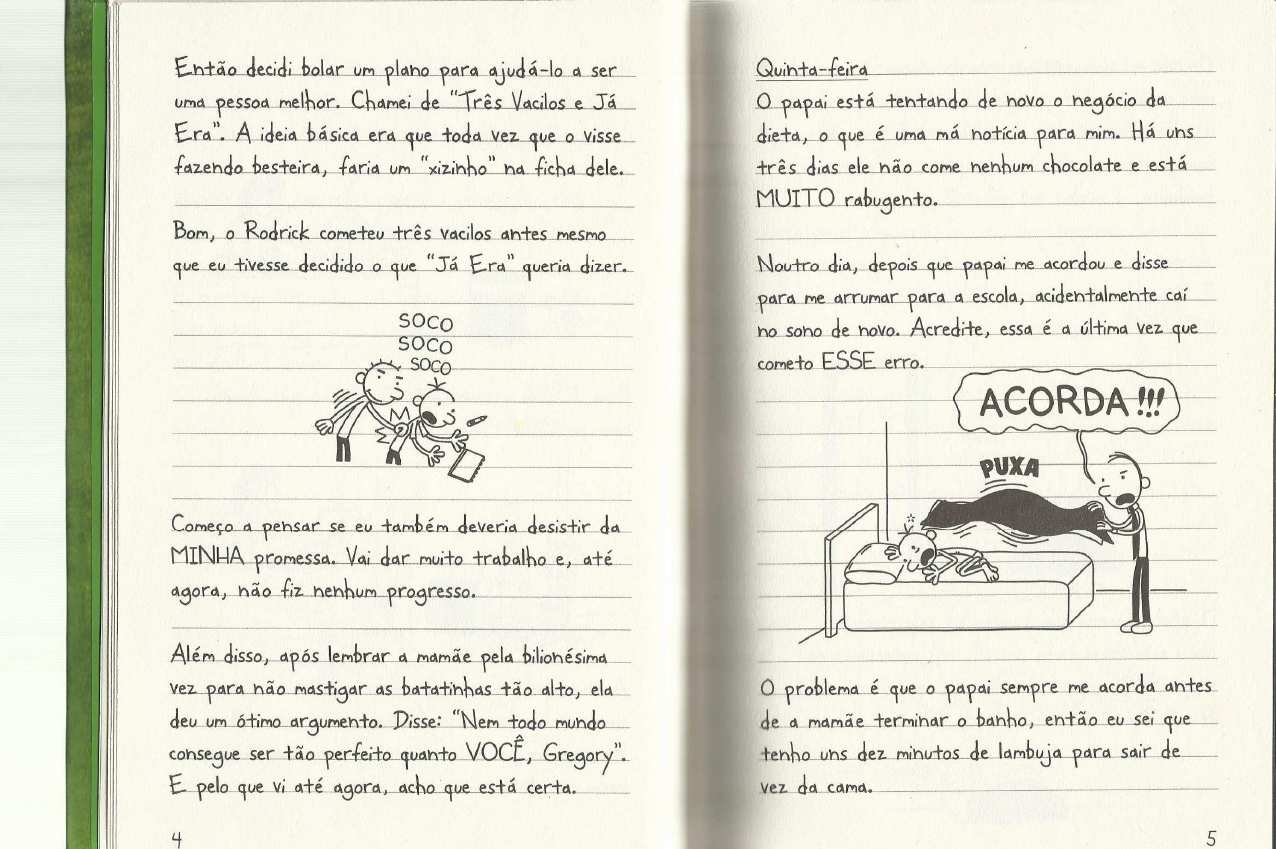 Então decidi bolar um plano para ajudá-lo a ser
uma pessoa melhor. Chamei de "Três Vacilos e Já
Era". A ideia básica era que toda vez que o visse
fazendo besteira, faria um "xizinho" na ficha dele.
Bom, o Rodrick cometeu três vacilos antes mesmo
que eu tivesse decidido o que "Já Era" queria dizer.
SOCO
SOCO
SOCO
Começo a pensar se eu também deveria desistir da
MINHA promessa. Vai dar muito trabalho e, até
agora, não fiz nenhum progresso.
Além disso, após lembrar a mamãe pela bilionésima
vez para não mastigar as batatinhas tão alto, ela
deu um ótimo argumento. Disse: "Nem todo mundo
consegue ser tão perfeito quanto VOCÊ, Gregory".
E pelo que vi até agora, acho que está certa.
4
Quinta-feira
O papai está tentando de novo o negócio da
dieta, o que é uma má notícia para mim. Há uns
três dias ele não come nenhum chocolate e está
MUITO rabugento.
Noutro dia, depois que papai me acordou e disse
para me arrumar para a escola, acidentalmente caí
no sono de novo. Acredite, essa é a última vez que
cometo ESSE erro.
ACORDA!!!
PUXA
O problema é que o papai sempre me acorda antes
de a mamãe terminar o banho, então eu sei que
tenho uns dez minutos de lambuja para sair de
vez da cama.
5